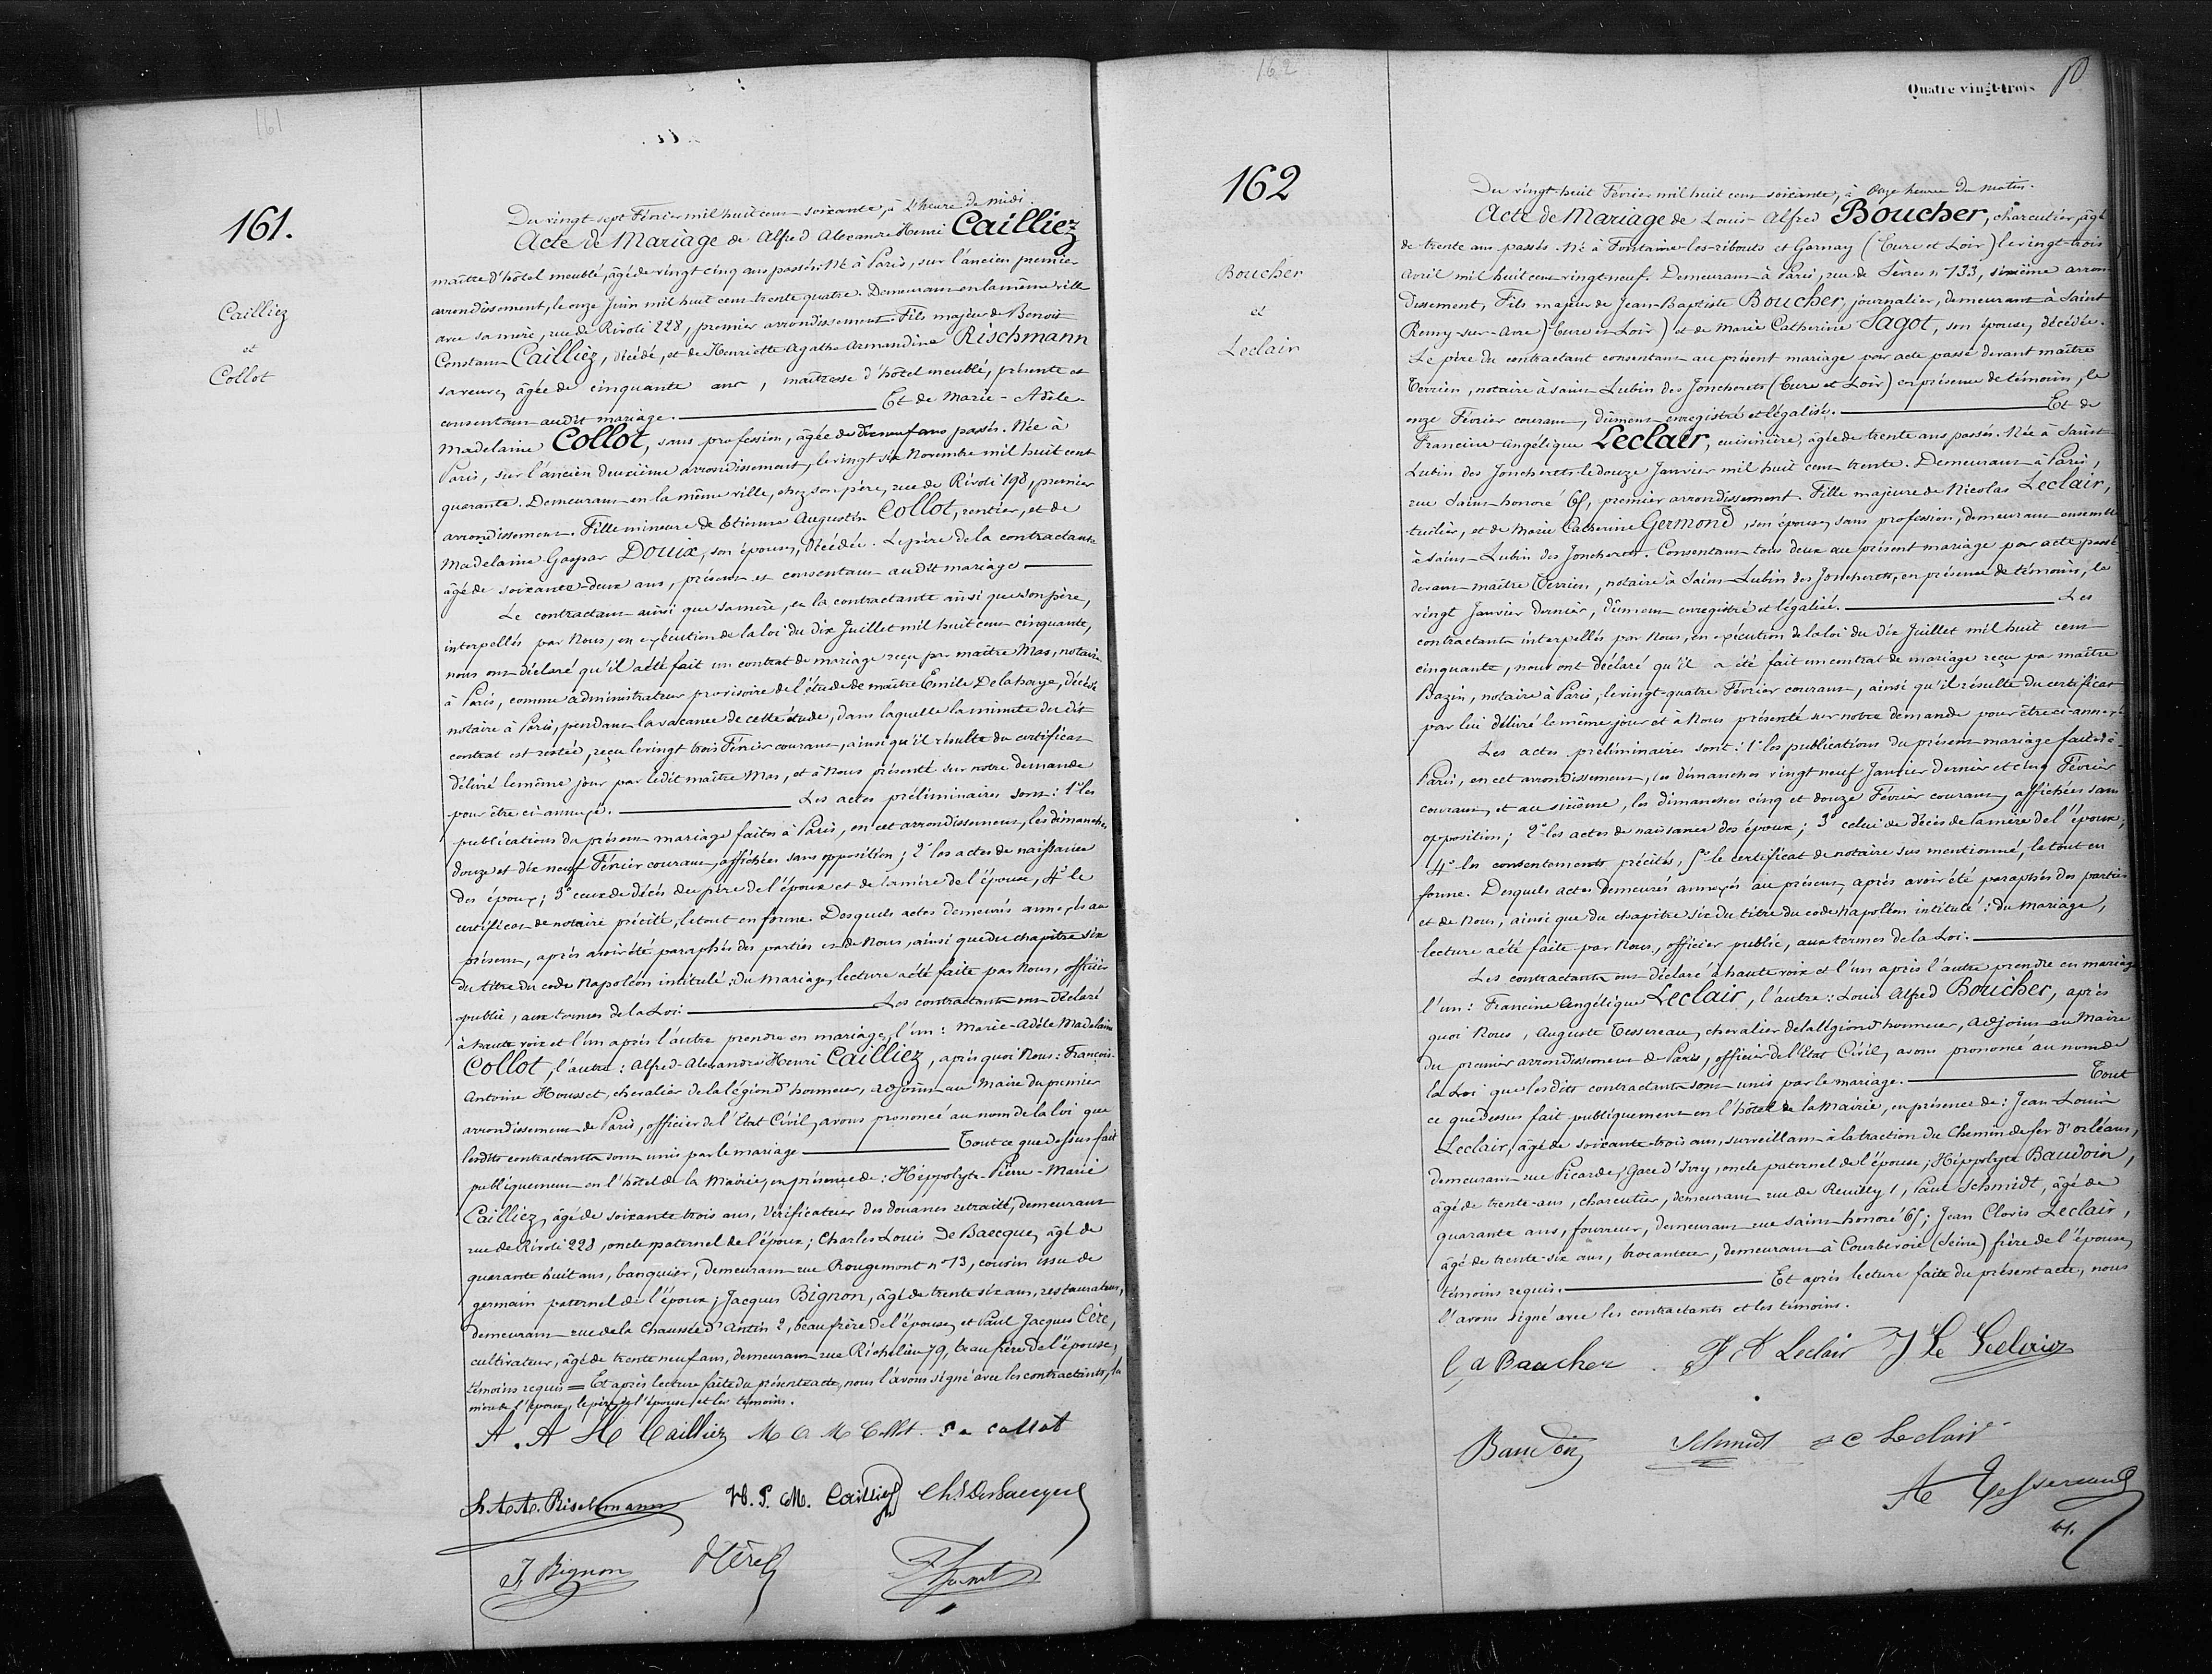 161
161.
Cailliez
et
Collot
Du vingt-sept Février mil huit cent soixante, à l'heure de midi.
Acte de Mariage de Alfred Alexandre Henri Cailliez
maître d'hôtel meublé, âgé de vingt cinq ans passés. Né à Paris, sur l'ancien premier
arrondissement, le onze Juin mil huit cent trente quatre. Demeurant en la même ville
avec sa mère, rue de Rivoli 228, premier arrondissement. Fils majeur de Benoit
Constant Cailliez, décédé, et de Henriette Agathe Armandine Rischmann
sa veuve, âgée de cinquante ans, maîtresse d'hôtel meublé, présente et
consentant audit mariage. Et de Marie-Adèle
Madelaine Collot, sans profession, âgée de dix neuf ans passés. Née à
Paris, sur l'ancien deuxième arrondissement, le vingt six Novembre mil huit cent
quarante. Demeurant en la même ville, chez son père, rue de Rivoli 198, premier
arrondissement. Fille mineure de Etienne Augustin Collot, rentier, et de
Madelaine Gaspar Douix, son épouse, décédée. Le père de la contractante
âgé de soixante-deux ans, présent et consentant audit mariage
Le contractant ainsi que sa mère, et la contractante ainsi que son père,
interpellés par Nous, en exécution de la loi du dix Juillet mil huit cent cinquante,
nous ont déclaré qu'il a été fait un contrat de mariage reçu par maître Mas, notaire
à Paris, comme administrateur provisoire de l'étude de maître Emile Delahaye, décédé
notaire à Paris, pendant la vacance de cette étude, dans laquelle la minute du dit
contrat est restée, reçu le vingt trois Février courant, ainsi qu'il résulte du certificat
délivré le même jour par ledit maître Mas, et à Nous présenté sur notre demande
pour être ci-annexé. Les actes préliminaires sont: 1° les
publications du présent mariage faites à Paris, en cet arrondissement, les dimanches
douze et dix neuf Février courant, affichées sans opposition; 2° les actes de naissance
des époux; 3° ceux de décès du père de l'époux et de la mère de l'épouse, 4° le
certificat de notaire précité, le tout en forme. Desquels actes demeurés annexés au
présent, après avoir été paraphés des parties et de Nous, ainsi que du chapitre six
du titre du code Napoléon intitulé: du Mariage, lecture a été faite par Nous, officier
public, aux termes de la Loi. Les contractants ont déclaré
à haute voix et l'un après l'autre prendre en mariage, l'un: Marie-Adèle Madelaine
Collot, l'autre: Alfred-Alexandre Henri Cailliez, après quoi Nous: François-
Antoine Housset, chevalier de la légion d'honneur, adjoint au Maire du premier
arrondissement de Paris, officier de l'Etat Civil, avons prononcé au nom de la loi que
lesdits contractants sont unis par le mariage Tout ce que dessus fait
publiquement en l'hôtel de la Mairie, en présence de: Hippolyte-Pierre-Marie
Cailliez, âgé de soixante trois ans, Vérificateur des douanes retraité, demeurant
rue de Rivoli 228, oncle paternel de l'époux; Charles Louis De Baecque, âgé de
quarante huit ans, banquier, demeurant rue Rougemont n° 13, cousin issu de
germain paternel de l'époux; Jacques Bignon, âgé de trente six ans, restaurateur,
demeurant rue de la Chaussée d'Antin 2, beau frère de l'épouse, et Paul Jacques Cère,
cultivateur, âgé de trente neuf ans, demeurant rue Richelieu 79, beau frère de l'épouse,
témoins requis = Et après lecture faite du présent acte, nous l'avons signé avec les contractants, la
mère de l'époux, le père de l'épouse et les témoins.
A. A H Cailliez M A M Collot E A collot
H. A. A. Rischmann H. P. M. Cailliez Ch. L. De Baecque
J. Bignon P Cère
162
Quatre vingt-trois
162
Boucher
et
Leclair
Du vingt-huit Février mil huit cent soixante, à Onze heures du matin.
Acte de Mariage de Louis-Alfred Boucher, charcutier, âgé
de trente ans passés. Né à Fontaine-les-ribouts et Garnay (Eure et Loir) le vingt-trois
Avril mil huit cent vingt neuf. Demeurant à Paris, rue de Sèvres n° 133, sixième arron-
dissement, Fils majeur de Jean-Baptiste Boucher, journalier, demeurant à Saint
Remy-sur-Avre (Eure et Loir) et de Marie Catherine Sagot, son épouse, décédée.
Le père du contractant consentant au présent mariage par acte passé devant maître
Terrien, notaire à Saint-Lubin des Joncherets (Eure et Loir) en présence de témoins, le
onze Février courant, dûment enregistré et légalisé. Et de
Francine Angélique Leclair, cuisinière, âgée de trente ans passés. Née à Saint
Lubin des Joncherets le douze Janvier mil huit cent trente. Demeurant à Paris,
rue Saint-honoré 65, premier arrondissement. Fille majeure de Nicolas Leclair,
tuilier, et de Marie Catherine Germond, son épouse, sans profession, demeurant ensemble
à Saint-Lubin des Joncherets. Consentant tous deux au présent mariage par acte passé
devant maître Terrien, notaire à Saint-Lubin des Joncherets, en présence de témoins, le
vingt Janvier dernier, dûment enregistré et légalisé. Les
contractants interpellés par Nous, en exécution de la loi du dix Juillet mil huit cent
cinquante, nous ont déclaré qu'il a été fait un contrat de mariage reçu par maître
Bazin, notaire à Paris, le vingt-quatre Février courant, ainsi qu'il résulte du certificat
par lui délivré le même jour et à Nous présenté sur notre demande pour être ci-annexé
Les actes préliminaires sont: 1° les publications du présent mariage faites à
Paris, en cet arrondissement, les dimanches vingt neuf Janvier dernier et cinq Février
courant, et au sixième, les dimanches cinq et douze Février courant, affichées sans
opposition; 2° les actes de naissance des époux; 3° celui de décès de la mère de l'époux;
4° les consentements précités, 5° le certificat de notaire sus mentionné, le tout en
forme. Desquels actes demeurés annexés au présent, après avoir été paraphés des parties
et de Nous, ainsi que du chapitre six du titre du code Napoléon intitulé: du Mariage,
lecture a été faite par Nous, officier public, aux termes de la Loi.
Les contractants ont déclaré à haute voix et l'un après l'autre prendre en mariage
l'un: Francine Angélique Leclair, l'autre: Louis Alfred Boucher, après
quoi Nous, Auguste Tessereau, chevalier de la légion d'honneur, Adjoint au Maire
du premier arrondissement de Paris, officier de l'Etat Civil, avons prononcé au nom de
la Loi que lesdits contractants sont unis par le mariage. Tout
ce que dessus fait publiquement en l'hôtel de la Mairie, en présence de: Jean-Louis
Leclair, âgé de soixante-trois ans, surveillant à la traction du Chemin de fer d'orléans,
demeurant rue Picarde, Gare d'Ivry, oncle paternel de l'épouse; Hippolyte Baudoin,
âgé de trente-ans, charcutier, demeurant rue de Reuilly 1, Paul Schmidt, âgé de
quarante ans, fourreur, demeurant rue Saint-honoré 65; Jean Clovis Leclair,
âgé de trente-six ans, brocanteur, demeurant à Courbevoie (Seine) frère de l'épouse,
témoins requis. Et après lecture faite du présent acte, nous
l'avons signé avec les contractants et les témoins.
L a Boucher F A Leclair J L Leclair
Baudoin Schmidt J C Leclair
A Tessereau